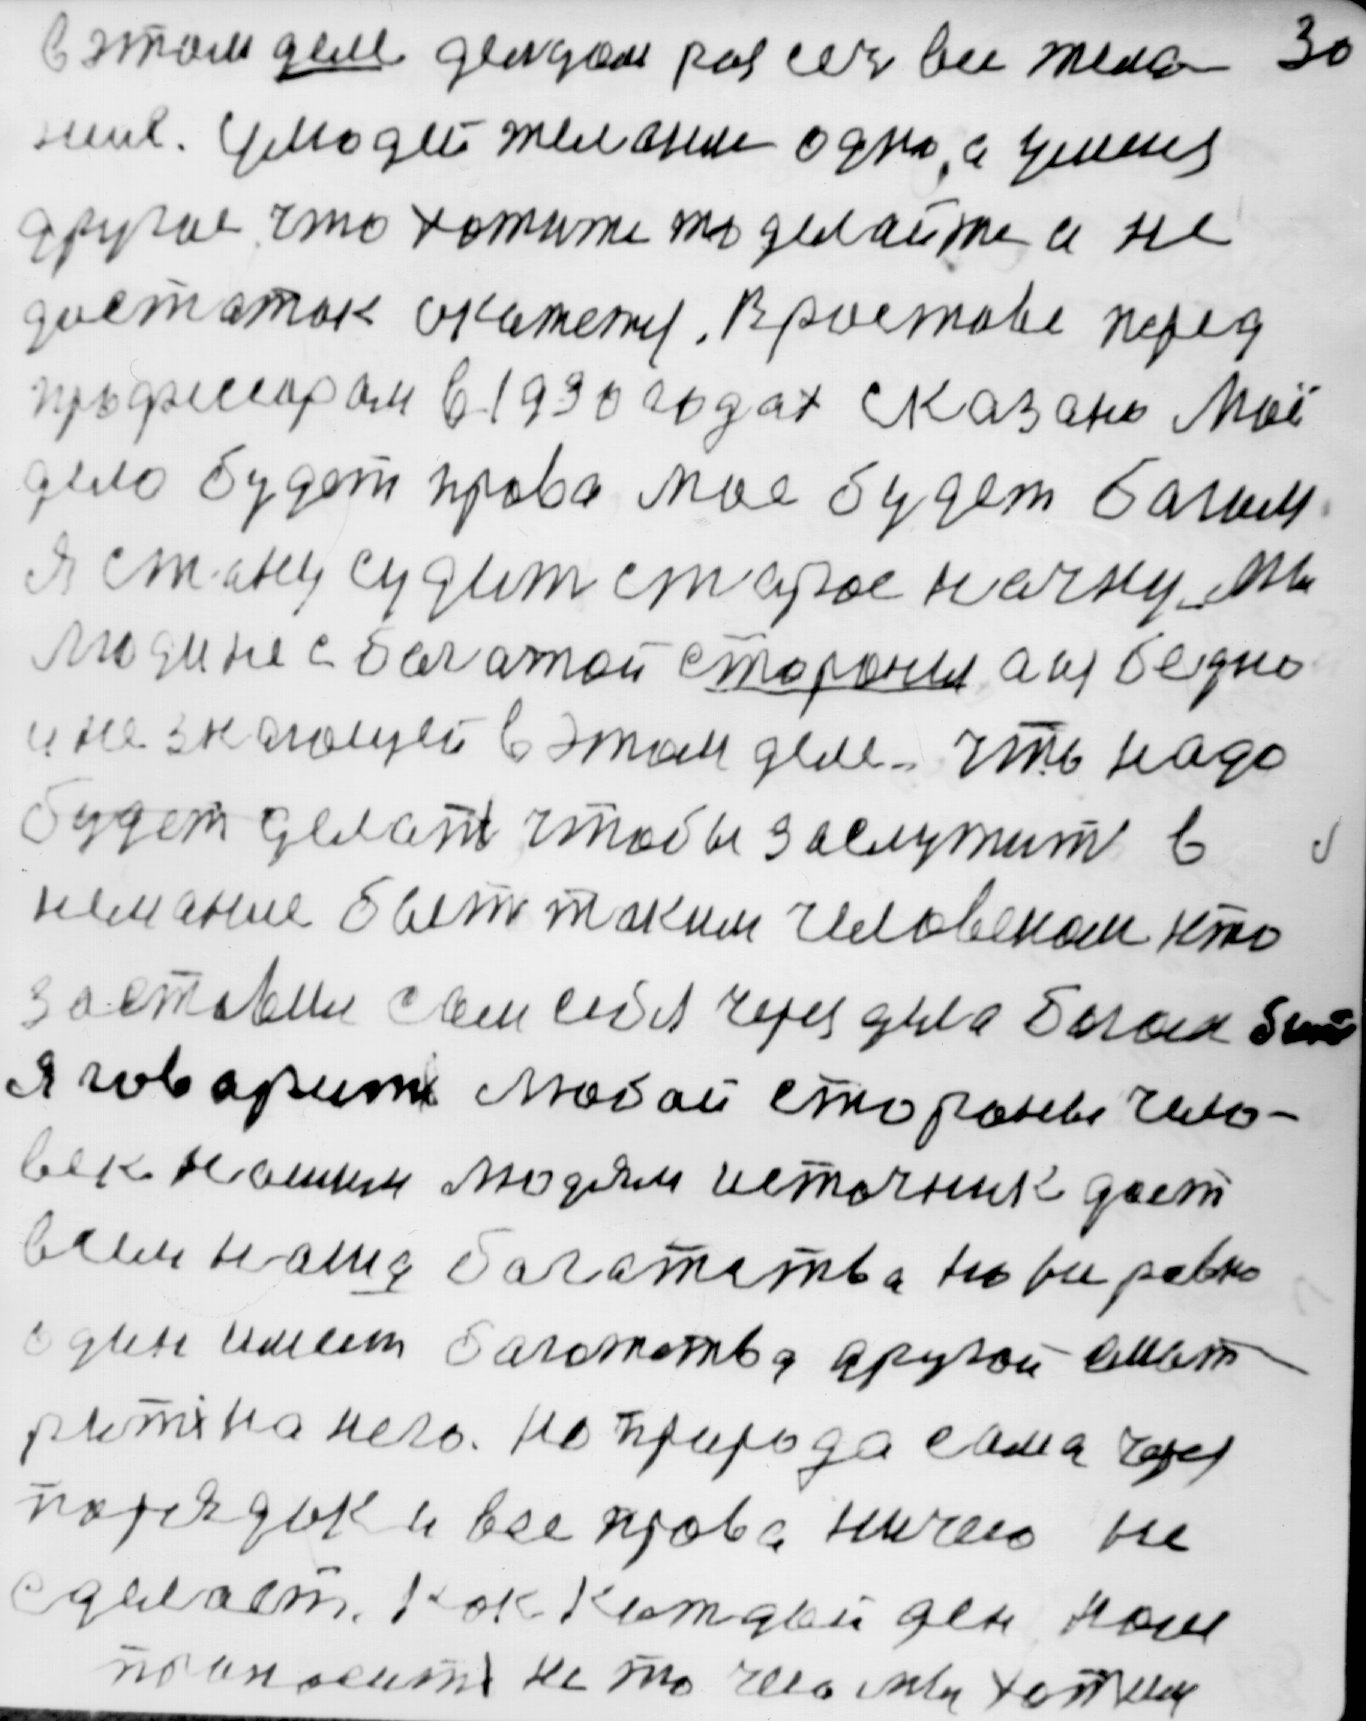 в этом деле делдом раз сеч вси жела- 30
ние. Умодей желание одно, а умения
другое что хотите то делайте а не
достаток окажеты. В ростове перед
професорам в 1930 годах сказано Маё
дело будет права мое будет богам
я стану судит старое начну мы
люди не с богатой стороны а из бедно
и не знающей в этом деле. что надо
будет делат чтобы заслужит в
немание быт таким человеком кто
заставил сам себя через дела богам быт
я говарит любой стороны чело-
век нашим людям источник дает
всем наша богатства но все равно
один имеет богатства другой смот
рит на него. но природа сама через
порядок и все права ничего не
сделает. Как каждый ден нам
приносит не то чего мы хотим